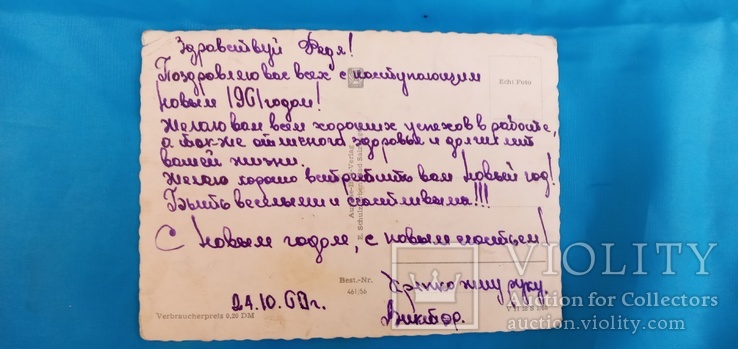 Здравствуй Федя!
Поздравляю вас всех с наступающим
новым 1961 годом!
Желаю вам всем хороших успехов в работе,
а так-же отличного здоровья и долгих лет
вашей жизни.
Желаю хорошо встретить вам Новый год!
Быть веселыми и счастливыми!!!
С Новым годом, с новым счастьем!
Крепко жму руку.
Виктор.
24.10.60г.
Echt Foto
Best.-Nr.
461/56
Verbraucherpreis 0,20 DM
VIOLITY
Auction for Collectors
auction.violity.com